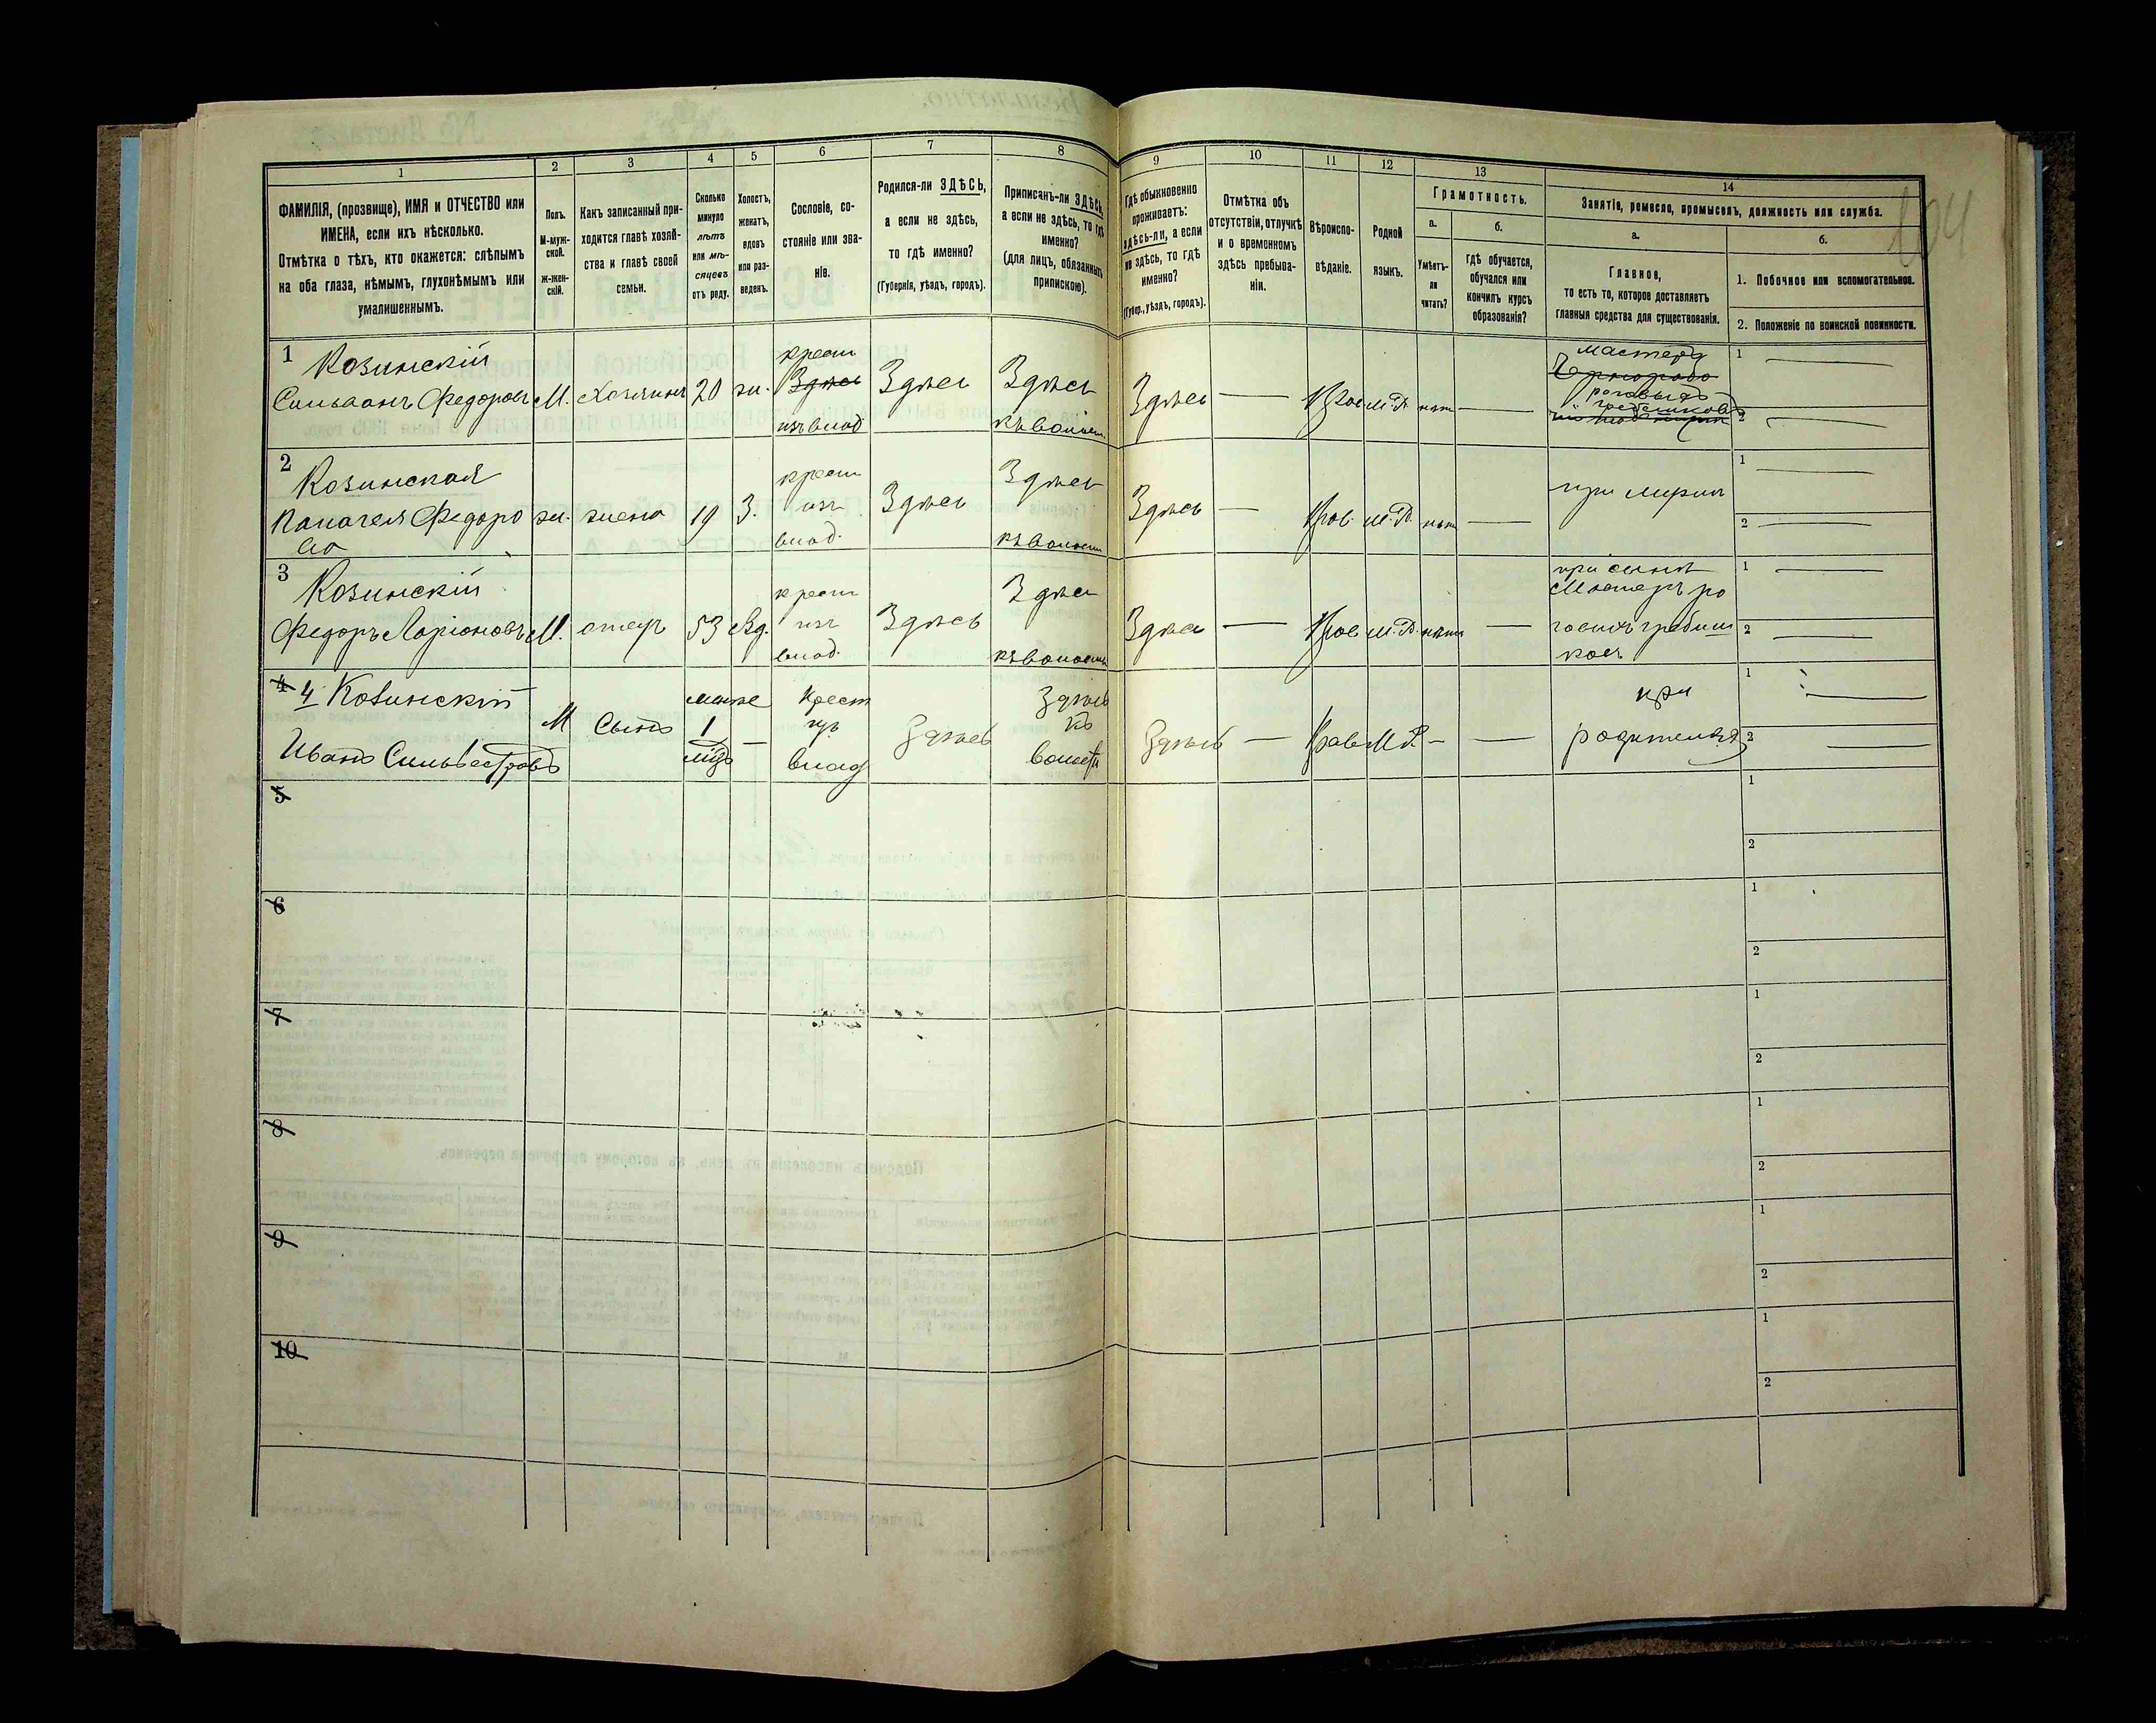 1
2
3
4
5
6
7
8
9
10
11
12
13
14
ФАМИЛІЯ, (прозвище), ИМЯ и ОТЧЕСТВО или
ИМЕНА, если ихъ нѣсколько.
Отмѣтка о тѣхъ, кто окажется: слѣпымъ
на оба глаза, нѣмымъ, глухонѣмымъ или
умалишеннымъ.
Полъ.
М-муж-
ской.
Ж-жен-
скій.
Какъ записанный при-
ходится главѣ хозяй-
ства и главѣ своей
семьи.
Сколько
минуло
лѣтъ
или мѣ-
сяцевъ
отъ роду.
Холостъ,
женатъ,
вдовъ
или раз-
веденъ.
Сословіе, со-
стояніе или зва-
ніе.
Родился-ли ЗДѢСЬ,
а если не здѣсь,
то гдѣ именно?
(Губернія, уѣздъ, городъ).
Приписанъ-ли ЗДѢСЬ,
а если не здѣсь, то гдѣ
именно?
(для лицъ, обязанныхъ
припискою).
Гдѣ обыкновенно
проживаетъ:
здѣсь-ли, а если
не здѣсь, то гдѣ
именно?
(Губер., уѣздъ, городъ).
Отмѣтка объ
отсутствіи, отлучкѣ
и о временномъ
здѣсь пребыва-
ніи.
Вѣроиспо-
вѣданіе.
Родной
языкъ.
Грамотность.
а.
Умѣетъ-
ли
читать?
б.
гдѣ обучается,
обучался или
кончилъ курсъ
образованія?
Занятіе, ремесло, промыселъ, должность или служба.
а.
Главное,
то есть то, которое доставляетъ
главныя средства для существованія.
б.
1. Побочное или вспомогательное.
2. Положеніе по воинской повинности.
1 Козинскій
Федоровъ М. Хозяинъ 20 ж.
крест
Здѣсь
изъ влад
Здѣсь
Здѣсь
къ волост
Здѣсь — Прав М. Р. нѣт —
мастеръ
роговыхъ
1
2
2 Козинская
Федоро
ва
ж. жена 19 З.
крест
изъ
влад.
Здѣсь
Здѣсь
къ волости
Здѣсь — Прав. М. Р. нѣт —
при мужѣ
1
2
3 Козинскій
Федоръ Ларіоновъ М. отецъ 53 Вд.
крест
изъ
влад.
Здѣсь
Здѣсь
къ волости
Здѣсь — Прав М. Р. нѣтъ —
при сынѣ
Мастеръ ро
говыхъ гребеш
ковъ
1
2
4 4 Козинскій
Иванъ Сильвестровъ
М Сынъ
менѣе
1
міц
—
Крест
изъ
влад
Здѣсь
Здѣсь
къ
волости
Здѣсь — Прав М Р. — —
при
родителяхъ
1
2
5
1
2
6
1
2
7
1
2
8
1
2
9
1
2
10
1
2